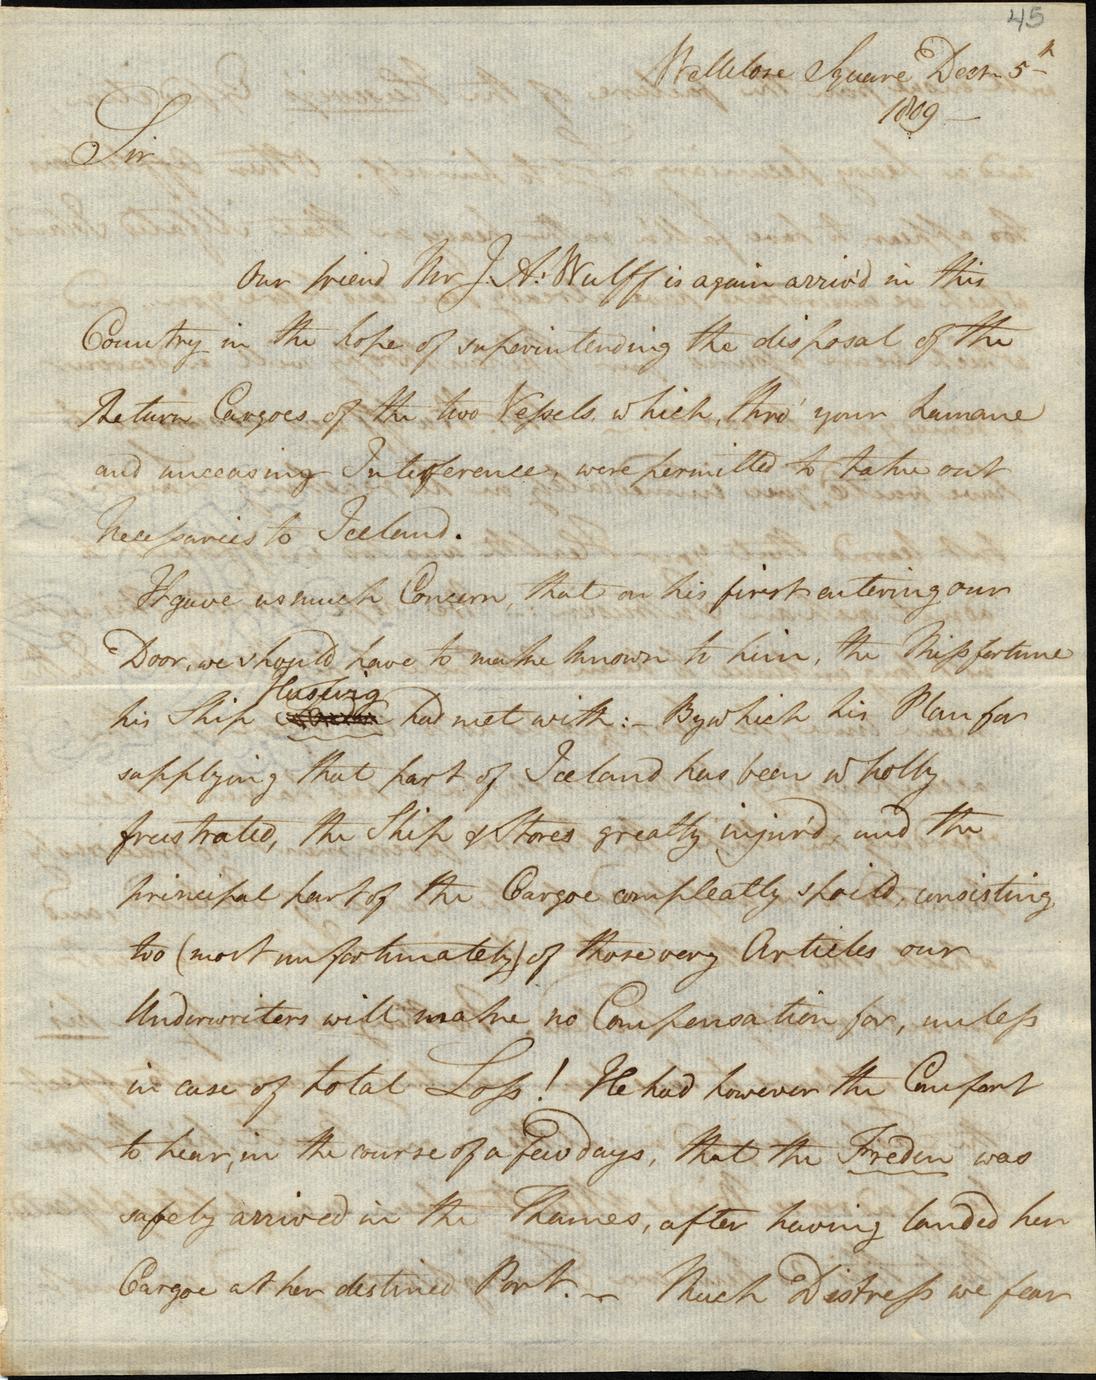 45
Wellclose Square Decr. 5th
1809 —
Sir
Our friend Mr J. A: Wulff is again arriv'd in this
Country in the hope of superintending the disposal of the
Return Cargoes of the two Vessels, which, thro' your humane
and unceasing Interference, were permitted to take out
Necessaries to Iceland.
It gave us much Concern, that on his first entering our
Door, we should have to make known to him, the Misfortune
Husevig
his Ship had met with: — By which his Plan for
supplying that part of Iceland has been wholly
frustrated, the Ship & Stores greatly injur'd, and the
principal part of the Cargoe compleatly spoil'd, consisting
too (most unfortunately) of those very Articles our
Underwriters will make no Compensation for, unless
in case of total Loss! He had however the Comfort
to hear, in the course of a few days, that the Freden was
safely arrived in the Thames, after having landed her
Cargoe at her destined Port. — Much Distress we fear